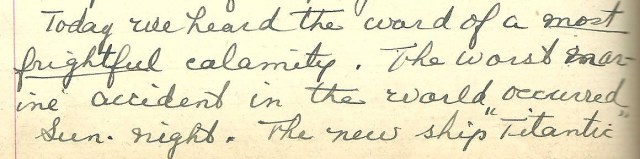 Today we heard the word of a most
frightful calamity. The worst mar-
ine accident in the world occurred
Sun. night. The new ship "Titantic"